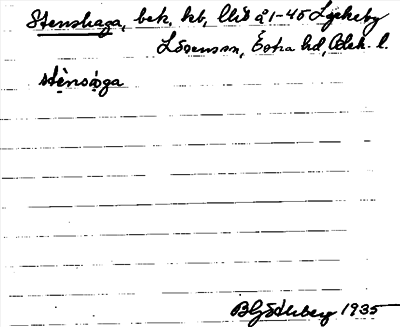 Stenshaga, bek. kb, Llid å 1-45 Lyckeby
Lösensn, Östra hd, Blek. l.
stè̀nsaga
B Göthberg 1935